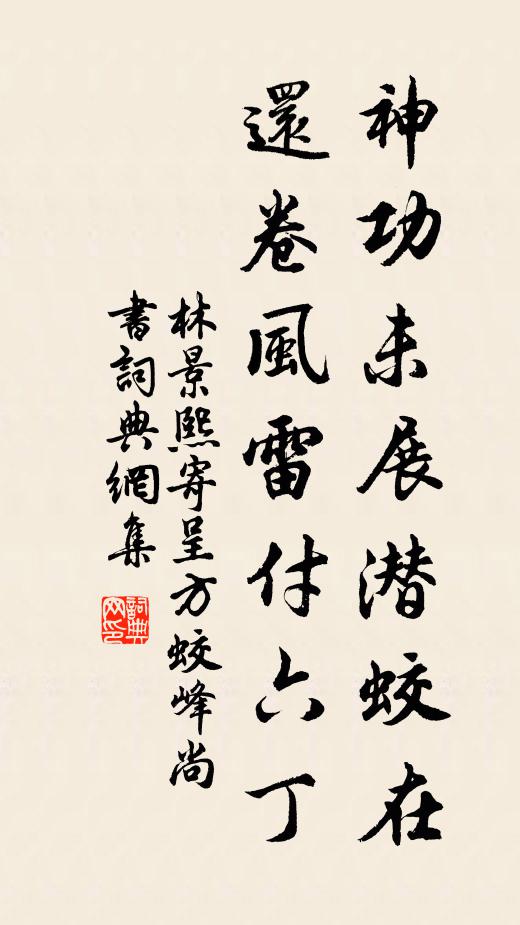 神功未展潜蛟在
還卷風雷付六丁
林景熙寄呈方蛟峰尚
書詞典網集
詞典网印